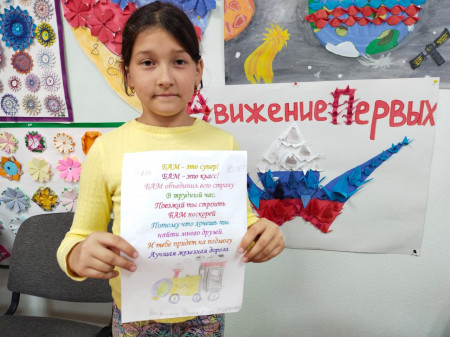 Движение Первых
БАМ - это супер!
БАМ - это класс!
БАМ объединил всю страну
В трудный час.
Поезжай ты строить
БАМ поскорей
Потому что хочешь ты
найти много друзей.
И тебе придет на подмогу
Лучшая железная дорога.